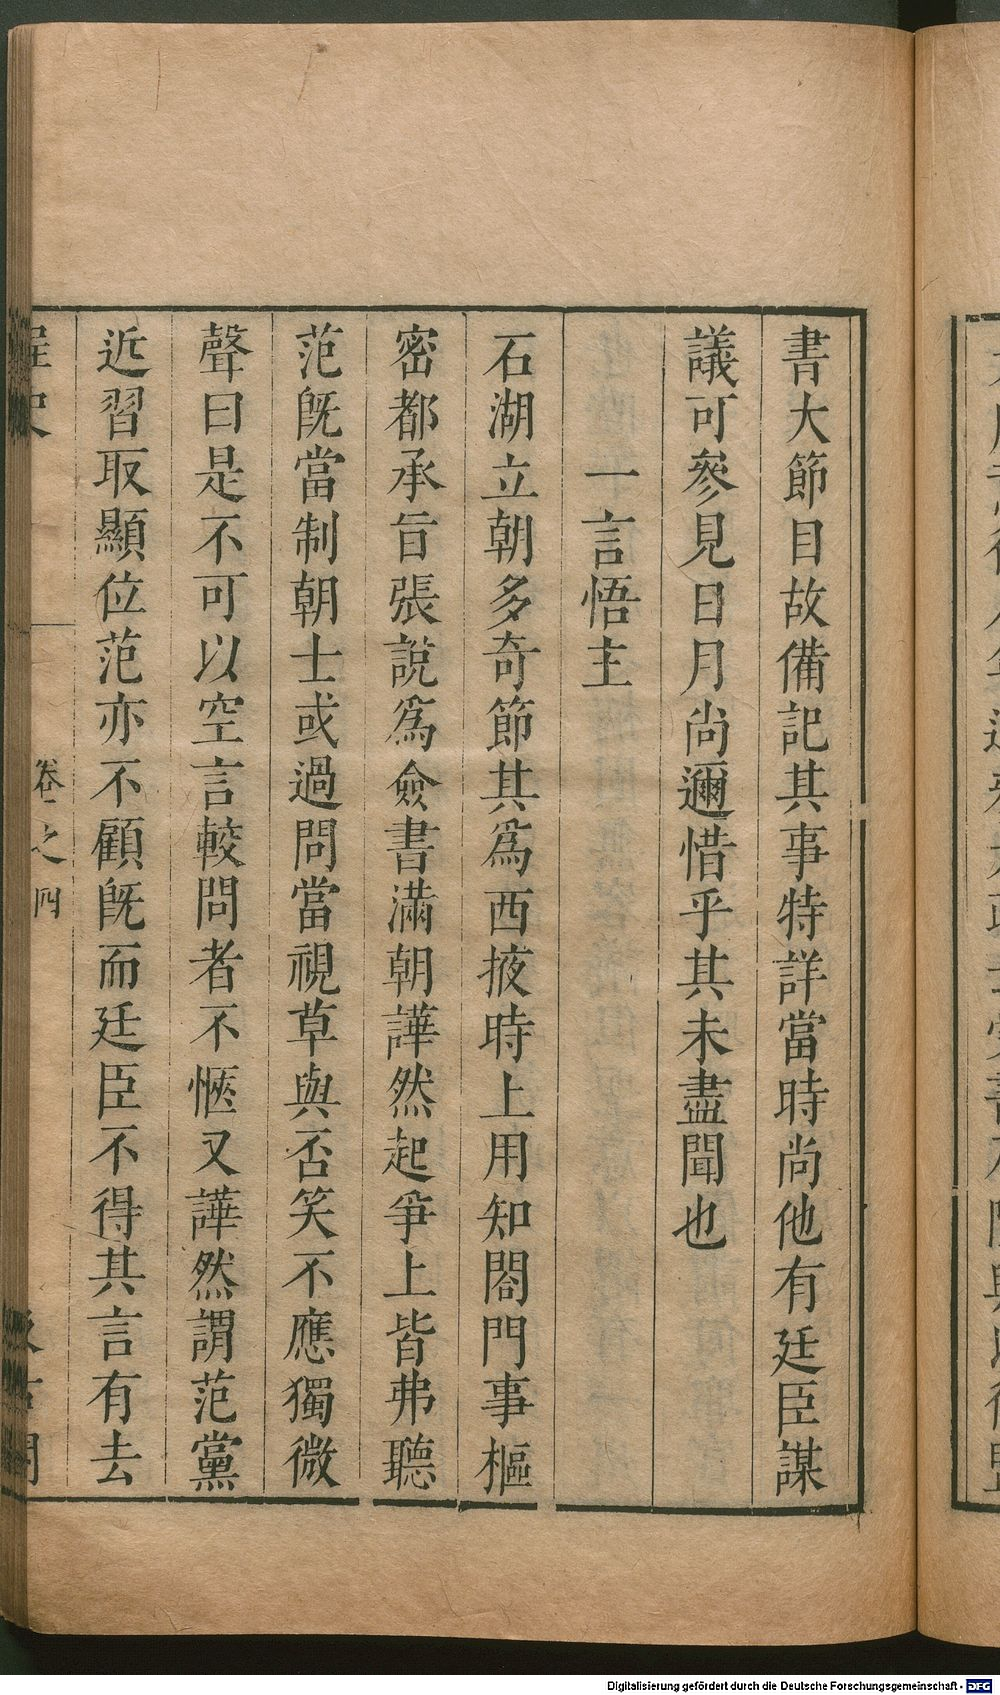 書大節目故備記其事特詳當時尚他有廷臣謀
議可參見日月尚邇惜乎其未盡聞也
一言悟主
石湖立朝多奇節其爲西掖時上用知閤門事樞
密都承旨張說爲僉書滿朝譁然起爭上皆弗聽
范旣當制朝士或過問當視草與否笑不應獨微
聲曰是不可以空言較問者不愜又譁然謂范黨
近習取顯位范亦不顧旣而廷臣不得其言有去
桯史
卷之四
Digitalisierung gefördert durch die Deutsche Forschungsgemeinschaft - DFG